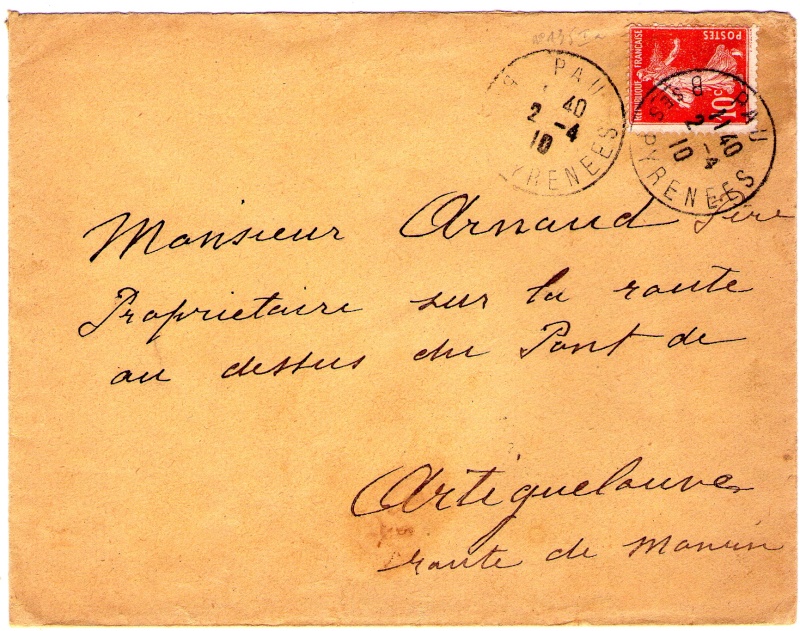 PAU
40
2 -4
10
PYRENEES
REPUBLIQUE FRANCAISE
POSTES
10c
PAU
21 40
2 -4
10
BSES PYRENEES
Monsieur Arnaud Père
Proprietaire sur la route
au dessus du Pont de
Artiguelouve
route de Monein